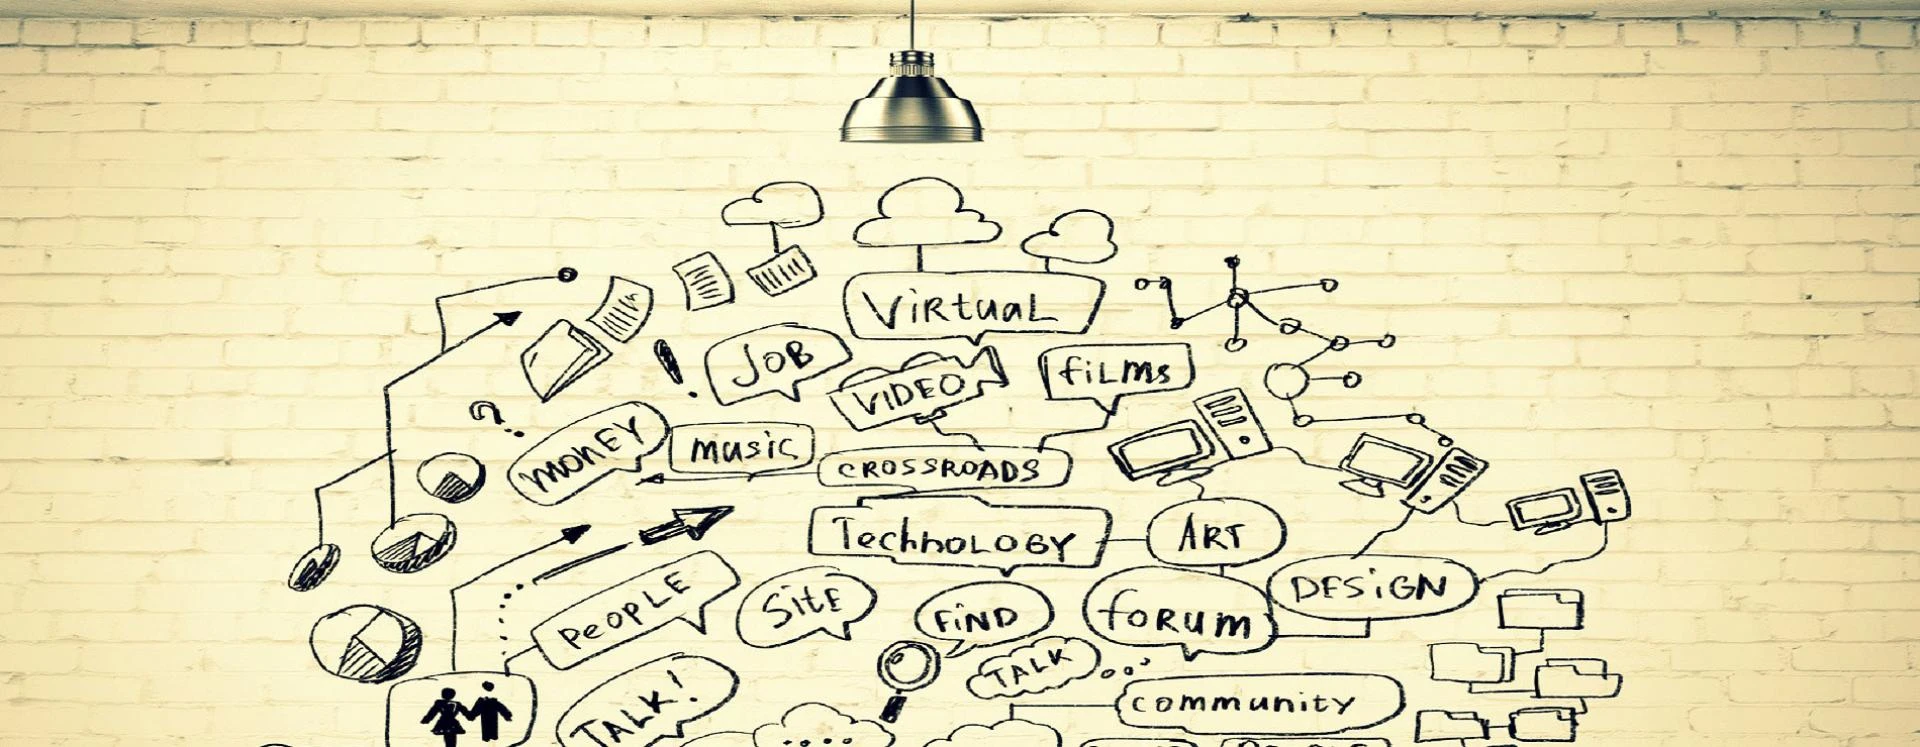 ViRtuaL
JOB
VIDEO
fiLms
MONEY
music
CROSSROADS
TechnOLOGY
ART
PeOPLE
SitE
FiND
foRum
DESiGN
TALK!
TALK
community